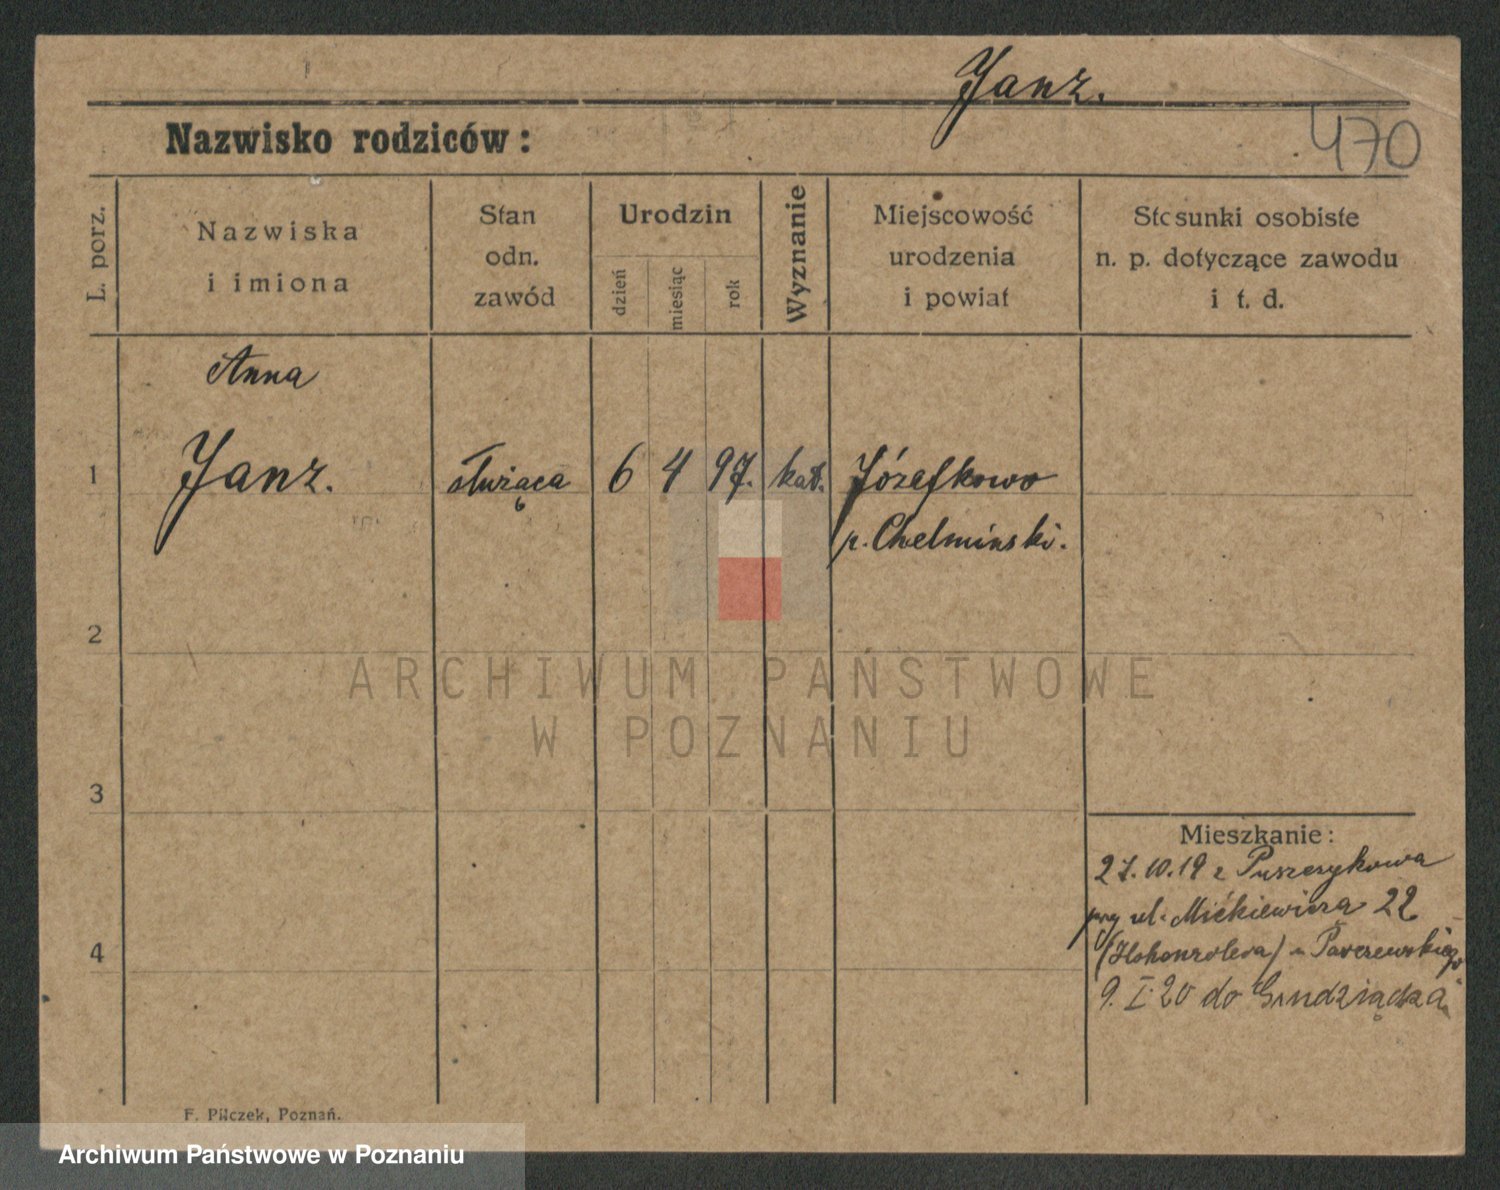 Janz.
Nazwisko rodziców:
470
L. porz.
Nazwiska
i imiona
Stan
odn.
zawód
Urodzin
dzień
miesiąc
rok
Wyznanie
Miejscowość
urodzenia
i powiat
Stosunki osobiste
n. p. dotyczące zawodu
i t. d.
Anna
1 Janz. służąca 6 4 97. kat. Józefkowo
p. Chelminski.
2
ARCHIWUM PAŃSTWOWE
W POZNANIU
3
Mieszkanie:
27.10.19 z Puszczykowa
przy ul. Mickiewicza 22
4
u Parczewskiego
9. I. 20 do Grudziądza
F. Pilczek, Poznań.
Archiwum Państwowe w Poznaniu